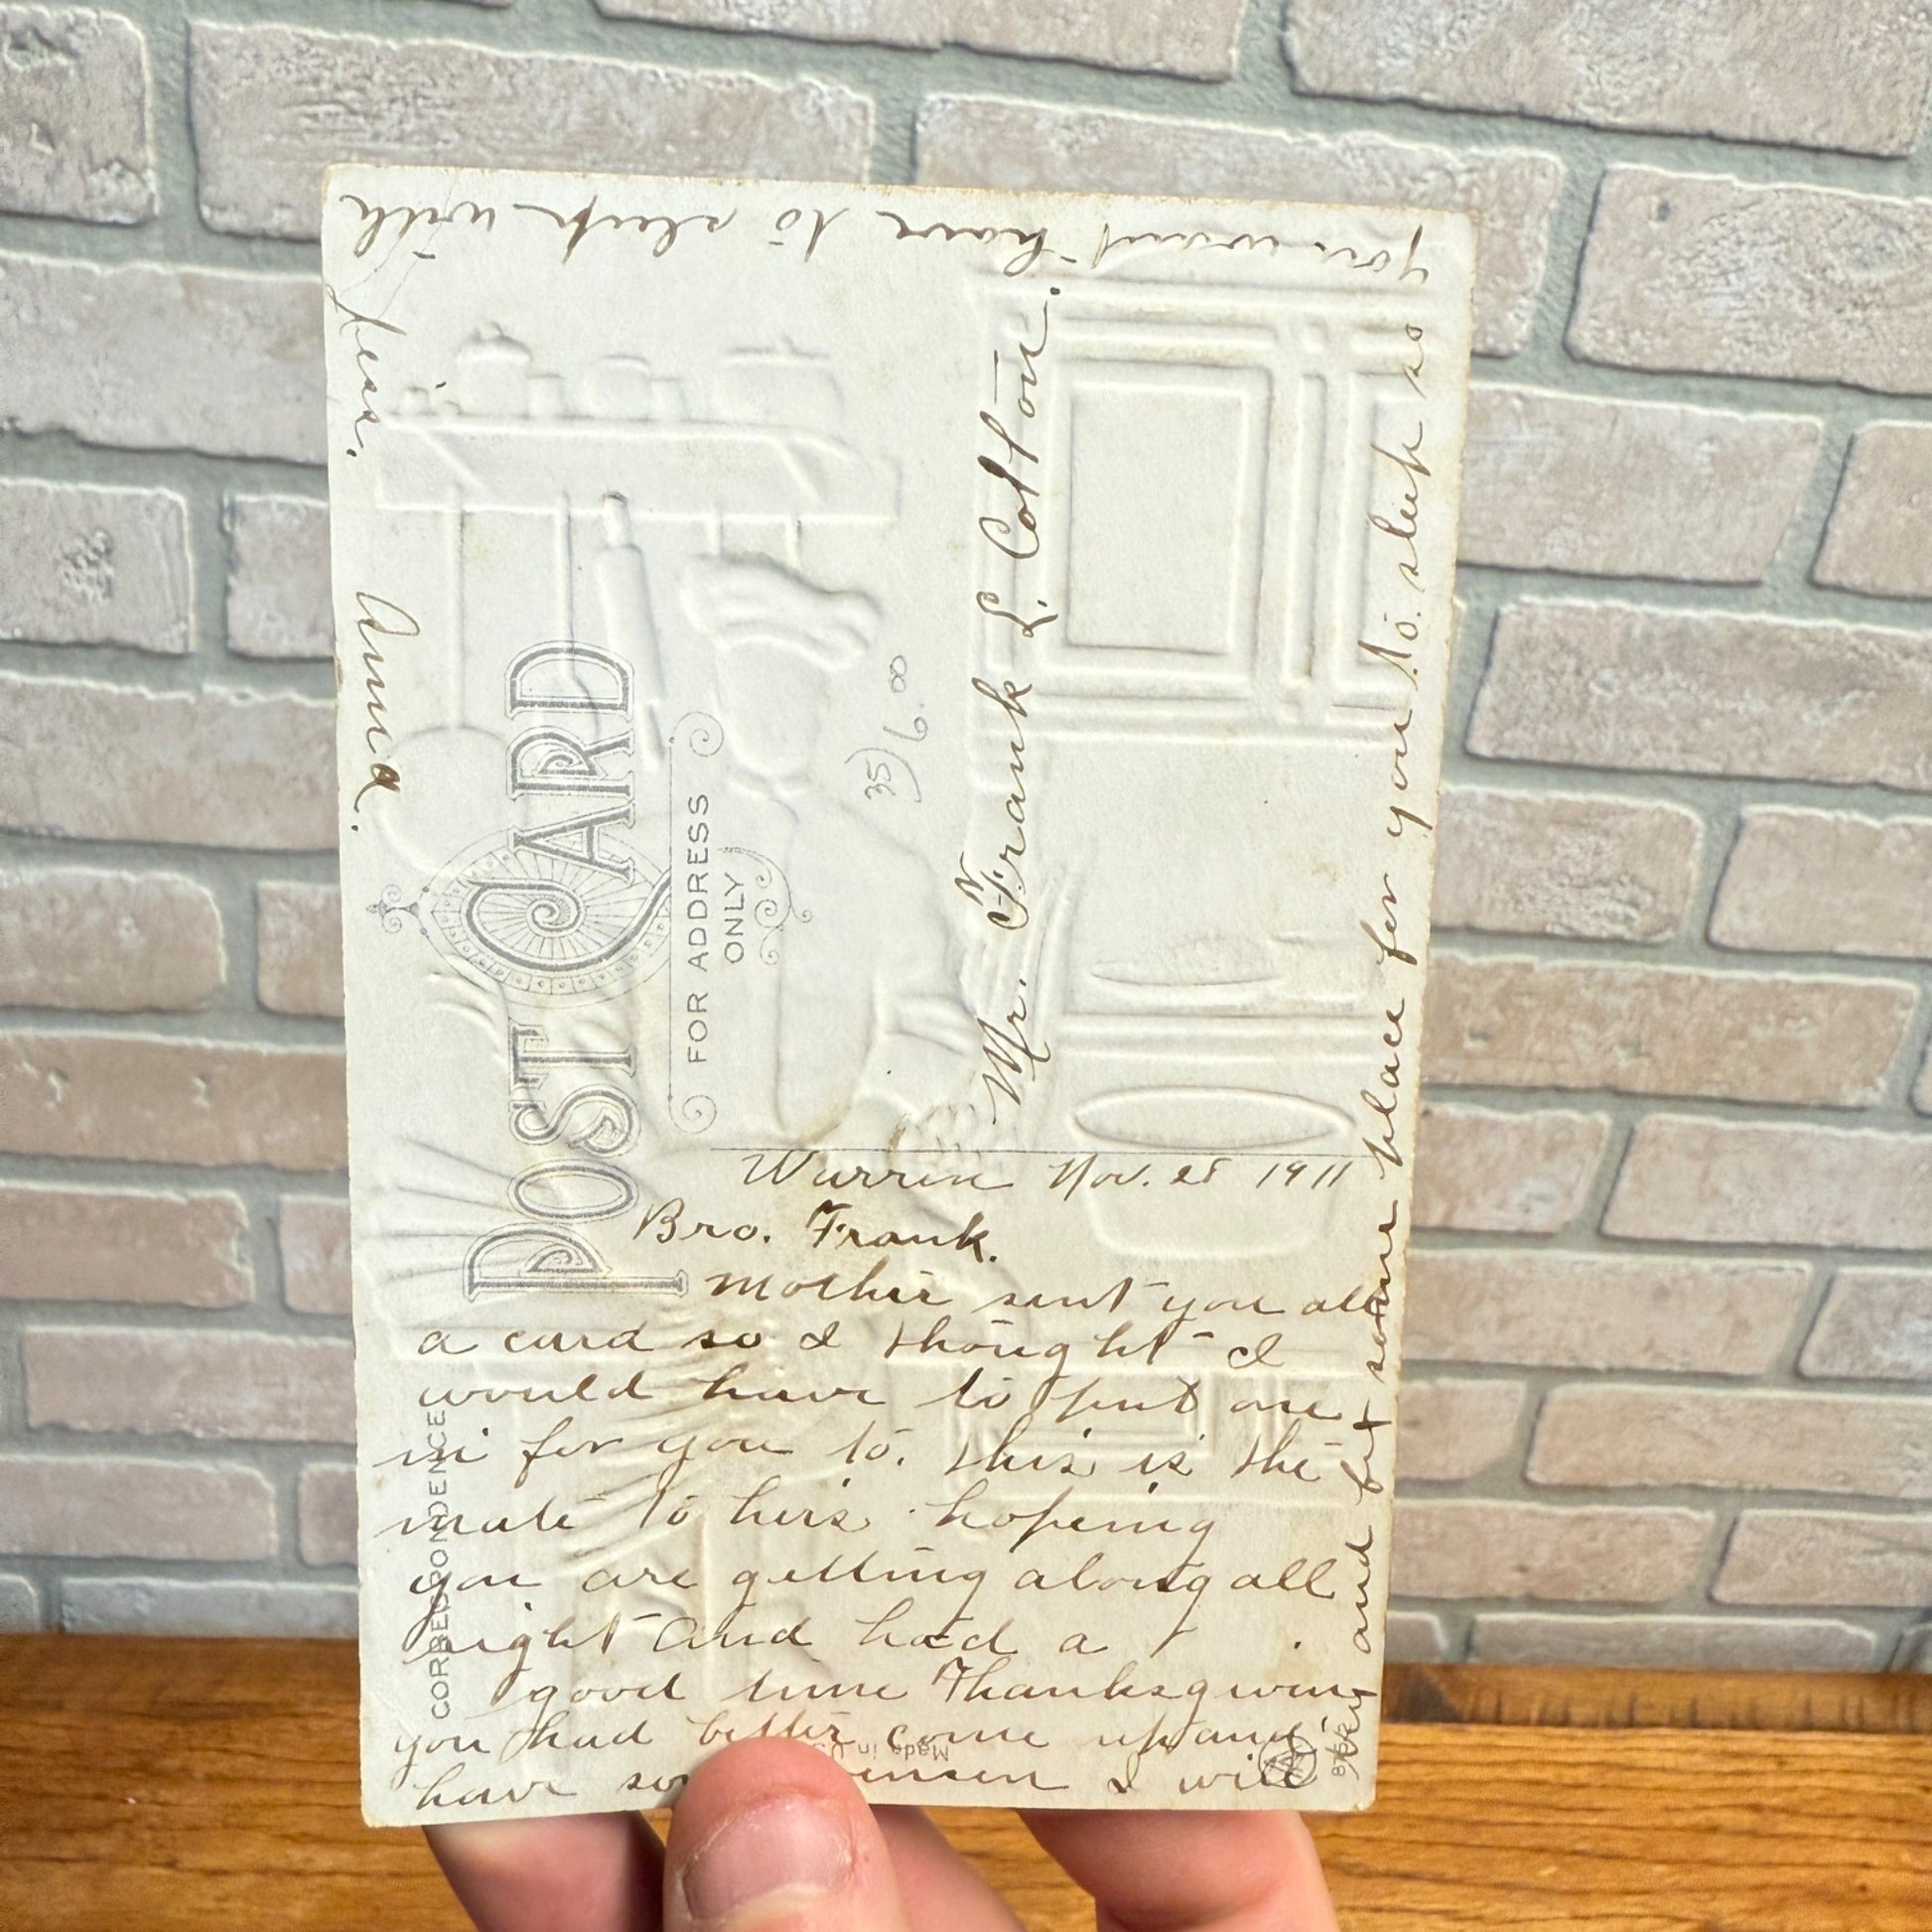 POST CARD
FOR ADDRESS
ONLY
CORRESPONDENCE
35) 6.00
Mr. Frank L. Cotton.
Warren Nov. 28 1911
Bro. Frank.
Mother sent you all
a card so I thought I
would have to put one
in for you to. this is the
mate to hers. hopeing
you are getting along all
right and had a
good time Thanksgiving
you had better come up and
have some I will
try and fix some place for you to sleep so
you want have to sleep with
Jess. Anna.
Made in U.S.